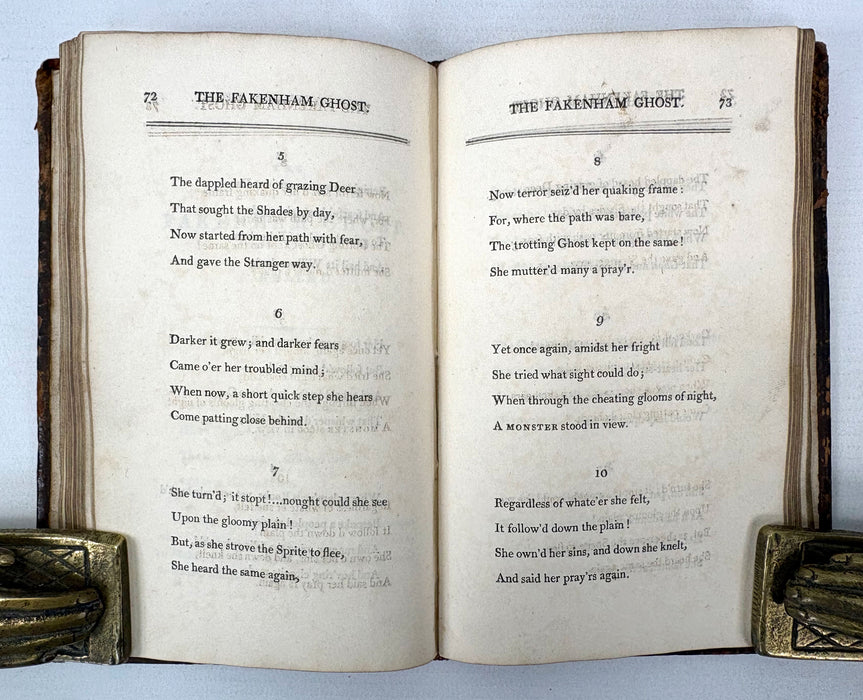 72 THE FAKENHAM GHOST.
5
The dappled heard of grazing Deer
That sought the Shades by day,
Now started from her path with fear,
And gave the Stranger way.
6
Darker it grew; and darker fears
Came o'er her troubled mind;
When now, a short quick step she hears
Come patting close behind.
7
She turn'd; it stopt!...nought could she see
Upon the gloomy plain!
But, as she strove the Sprite to flee,
She heard the same again.
THE FAKENHAM GHOST. 73
8
Now terror seiz'd her quaking frame:
For, where the path was bare,
The trotting Ghost kept on the same!
She mutter'd many a pray'r.
9
Yet once again, amidst her fright
She tried what sight could do;
When through the cheating glooms of night,
A MONSTER stood in view.
10
Regardless of whate'er she felt,
It follow'd down the plain!
She own'd her sins, and down she knelt,
And said her pray'rs again.